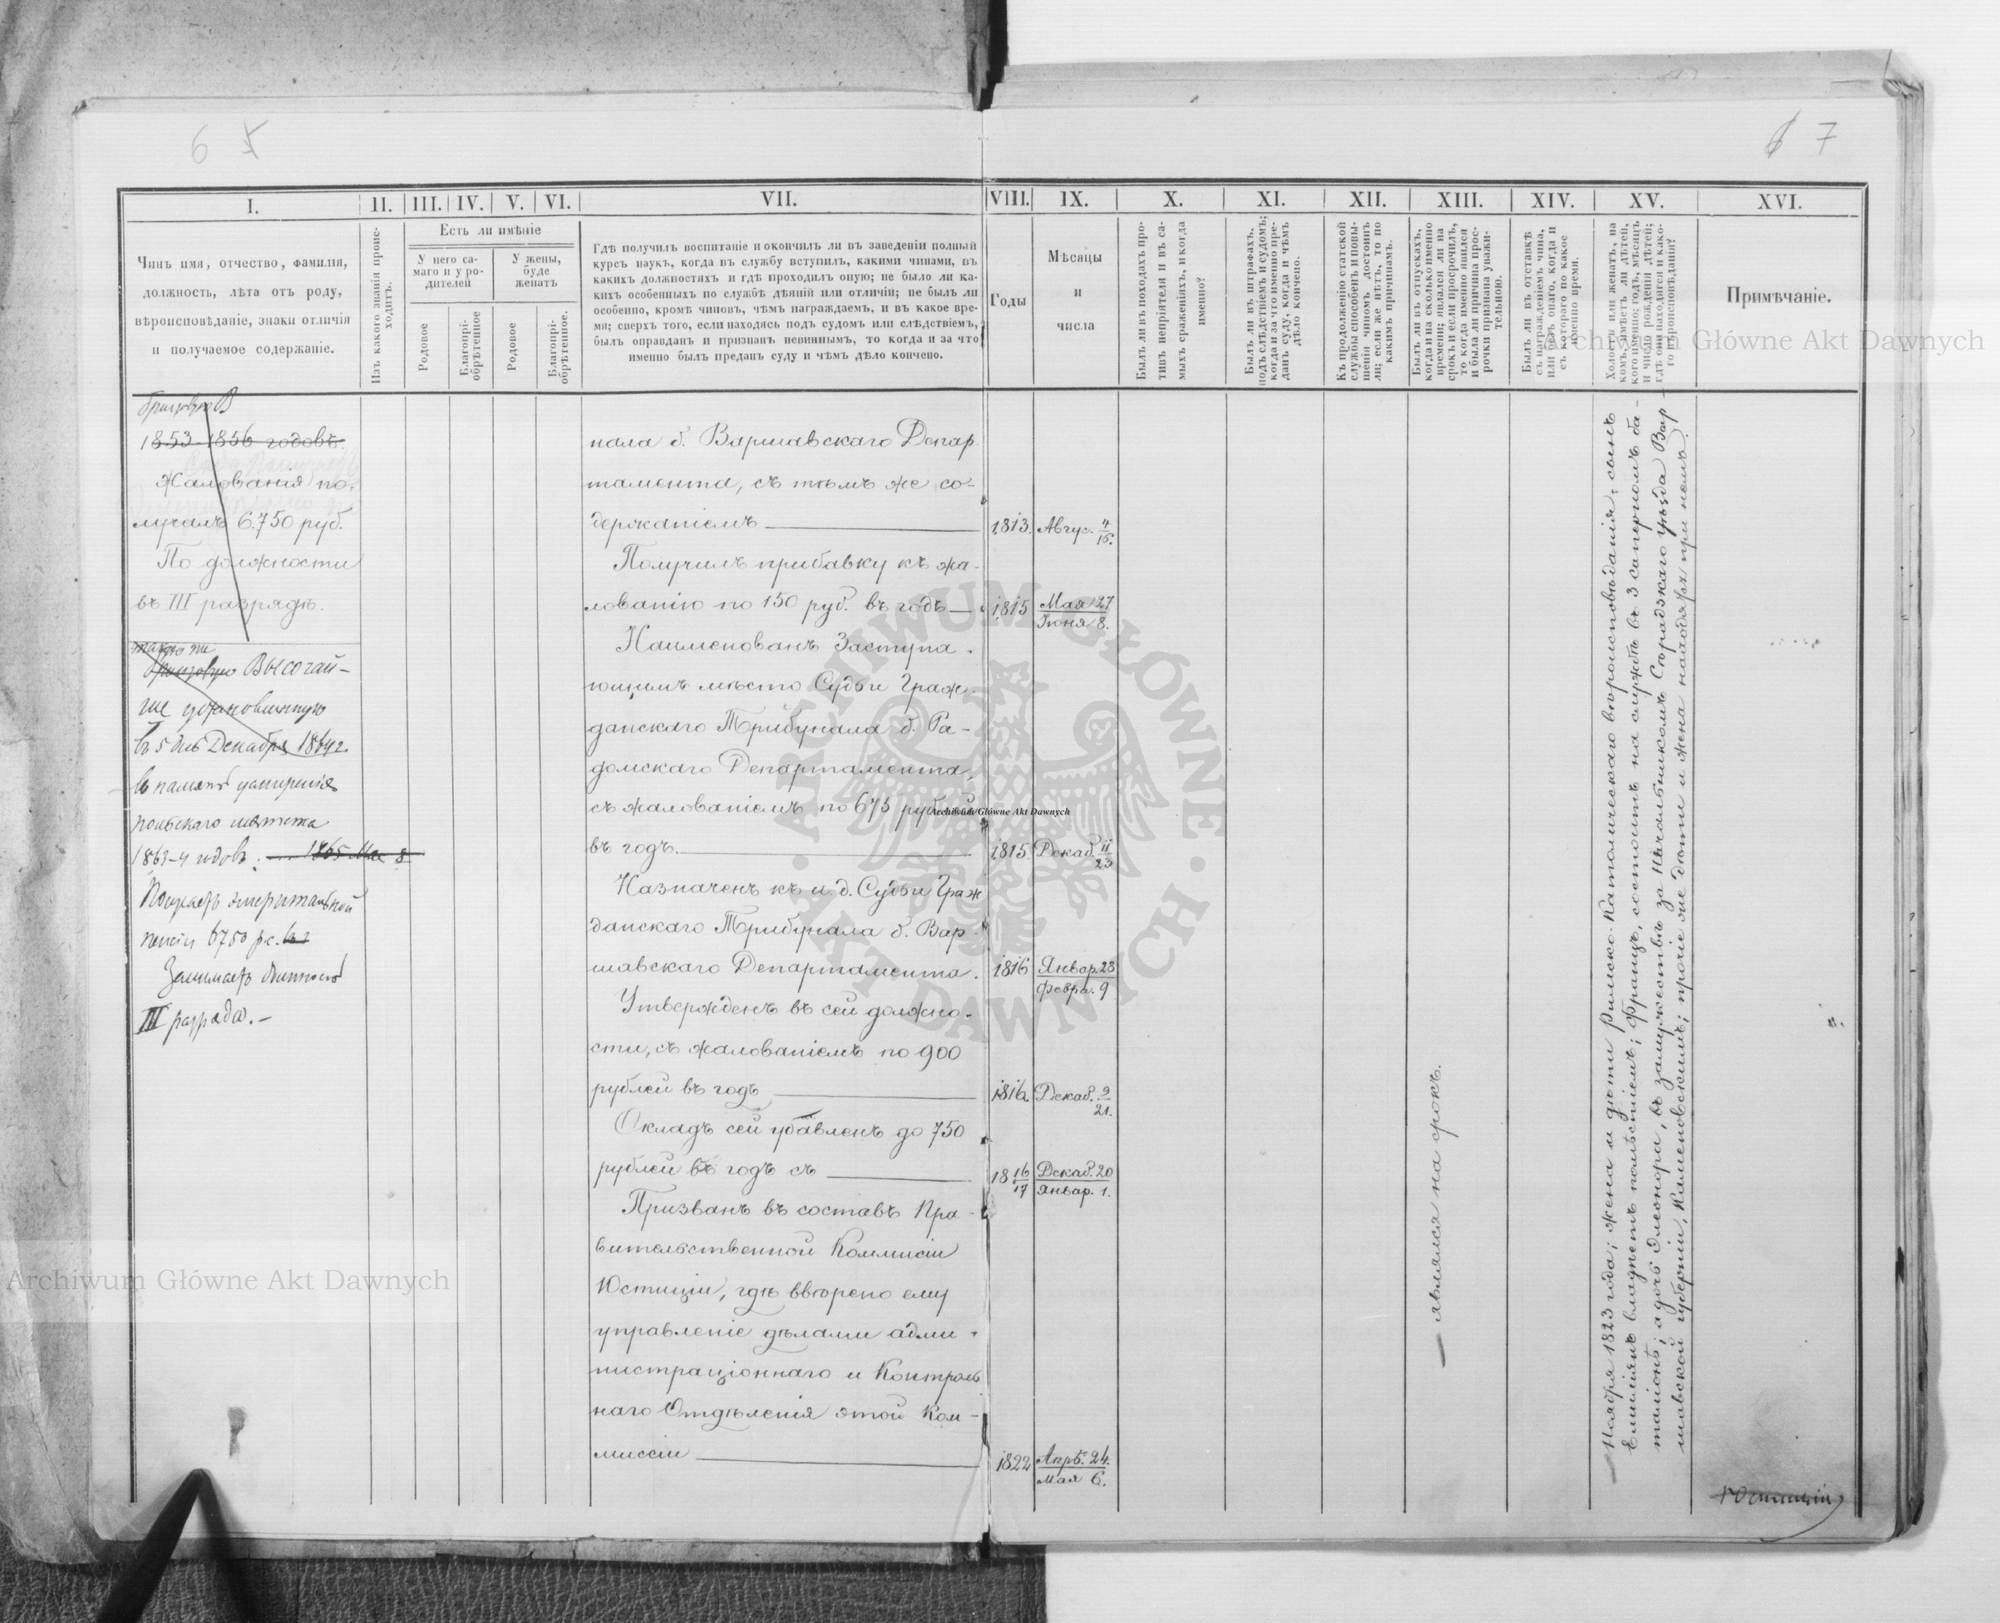 6 5
6 7
I.
II.
III.
IV.
V.
VI.
VII.
VIII.
IX.
X.
XI.
XII.
XIII.
XIV.
XV.
XVI.
Чинъ имя, отчество, фамилія,
должность, лѣта отъ роду,
вѣроисповѣданіе, знаки отличія
и получаемое содержаніе.
Изъ какого званія проис-
ходитъ.
Есть ли имѣніе
У него са-
маго и у ро-
дителей
У жены,
буде
женатъ
Родовое
Благопрі-
обрѣтенное
Родовое
Благопрі-
обрѣтенное.
Гдѣ получилъ воспитаніе и окончилъ ли въ заведеніи полный
курсъ наукъ, когда въ службу вступилъ, какими чинами, въ
какихъ должностяхъ и гдѣ проходилъ оную; не было ли ка-
кихъ особенныхъ по службѣ дѣяній или отличій; не былъ ли
особенно, кромѣ чиновъ, чѣмъ награждаемъ, и въ какое вре-
мя; сверхъ того, если находясь подъ судомъ или слѣдствіемъ,
былъ оправданъ и признанъ невиннымъ, то когда и за что
именно былъ преданъ суду и чѣмъ дѣло кончено.
Годы
Мѣсяцы
и
числа
Былъ ли въ походахъ про-
тивъ непріятеля и въ са-
мыхъ сраженіяхъ, и когда
именно?
Былъ ли въ штрафахъ,
подъ слѣдствіемъ и судомъ;
когда и за что именно пре-
данъ суду, когда и чѣмъ
дѣло кончено.
Къ продолженію статской
службы способенъ и повы-
шенія чиномъ достоинъ
ли; если же нѣтъ, то по
какимъ причинамъ.
Былъ ли въ отпускахъ,
когда и на сколько именно
времени; явился ли на
срокъ и если просрочилъ,
то когда именно явился
и была ли причина прос-
рочки признана уважи-
тельною.
Былъ ли въ отставкѣ
съ награжденіемъ чина,
или безъ онаго, когда и
съ котораго по какое
именно время.
Холостъ или женатъ, на
комъ, имѣетъ ли дѣтей,
кого именно; годъ, мѣсяцъ
и число рожденія дѣтей;
гдѣ они находятся и како-
го вѣроисповѣданія?
Примѣчаніе.
бронзовую В
1853-1856 годовъ.
Жалованія по-
лучалъ 6.750 руб.
По должности
въ III разрядѣ.
такую же
бронзовую Высочай-
ше установленную
въ 5 день Декабря 1864 г.
въ память усмиренія
польскаго мятежа
1863-4 годовъ. 1865 Мая 8
Получаетъ эмеритальной
пенсіи 6750 р.с.
Занимаетъ должность
III разряда.-
нала б. Варшавскаго Депар
тамента, съ тѣмъ же со-
держаніемъ
1813. Авгус. 4/16.
Получилъ прибавку къ жа-
лованію по 150 руб. въ годъ
1815 Мая 27/Іюня 8.
Наименованъ Заступа-
ющимъ мѣсто Судьи Граж-
данскаго Трибунала б. Ра-
домскаго Департамента,
съ жалованіемъ по 675 рублей
въ годъ.
1815 Декаб. 11/23
Назначенъ къ и. д. Судьи Граж
данскаго Трибунала б. Вар-
шавскаго Департамента.
1816 Январ. 28/Февра. 9
Утвержденъ въ сей должно-
сти, съ жалованіемъ по 900
рублей въ годъ
1816. Декаб. 9/21.
Окладъ сей убавленъ до 750
рублей въ годъ съ
18 16/17 Декаб. 20/Январ. 1.
Призванъ въ составъ Пра-
вительственной Коммисіи
Юстиціи, гдѣ ввѣрено ему
управленіе дѣлами адми-
нистраціоннаго и Контроль
наго Отдѣленія этой Ком-
миссіи
1822 Апрѣ. 24./Мая 6.
— являлся на срокъ.
— Ноября 1823 года; жена и дѣти Римско-Католическаго вѣроисповѣданія; сынъ
Емиліянъ владѣетъ помѣстіемъ; Францъ, состоитъ на службѣ въ 3 саперномъ ба-
таліонѣ; а дочь Элеонора, въ замужествѣ за Начальникомъ Сѣрадзкаго уѣзда Вар
шавской губерніи, Каменовскимъ; прочіе же дѣти и жена находятся при немъ.
Юстиціи
ARCHIWUM GŁÓWNE AKT DAWNYCH
Archiwum Główne Akt Dawnych
Archiwum Główne Akt Dawnych
Archiwum Główne Akt Dawnych